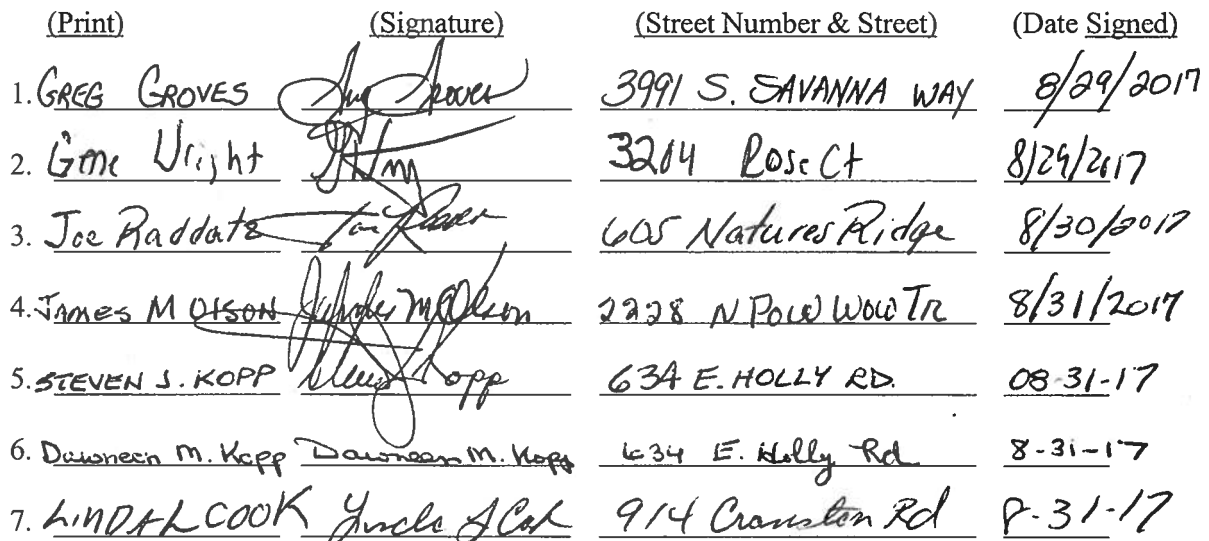 (Print) (Signature) (Street Number & Street) (Date Signed)
1. GREG GROVES Greg Groves 3991 S. SAVANNA WAY 8/29/2017
2. Gene Wright 3204 Rose Ct 8/29/2017
3. Joe Raddatz 605 Natures Ridge 8/30/2017
4. JAMES M OLSON James M Olson 2228 N Pow Wow Tr 8/31/2017
5. STEVEN J. KOPP Steven J Kopp 634 E. HOLLY RD. 08-31-17
6. Dawneen M. Kopp Dawneen M. Kopp 634 E. Holly Rd 8-31-17
7. LINDA L COOK Linda L Cook 914 Cranston Rd 8-31-17